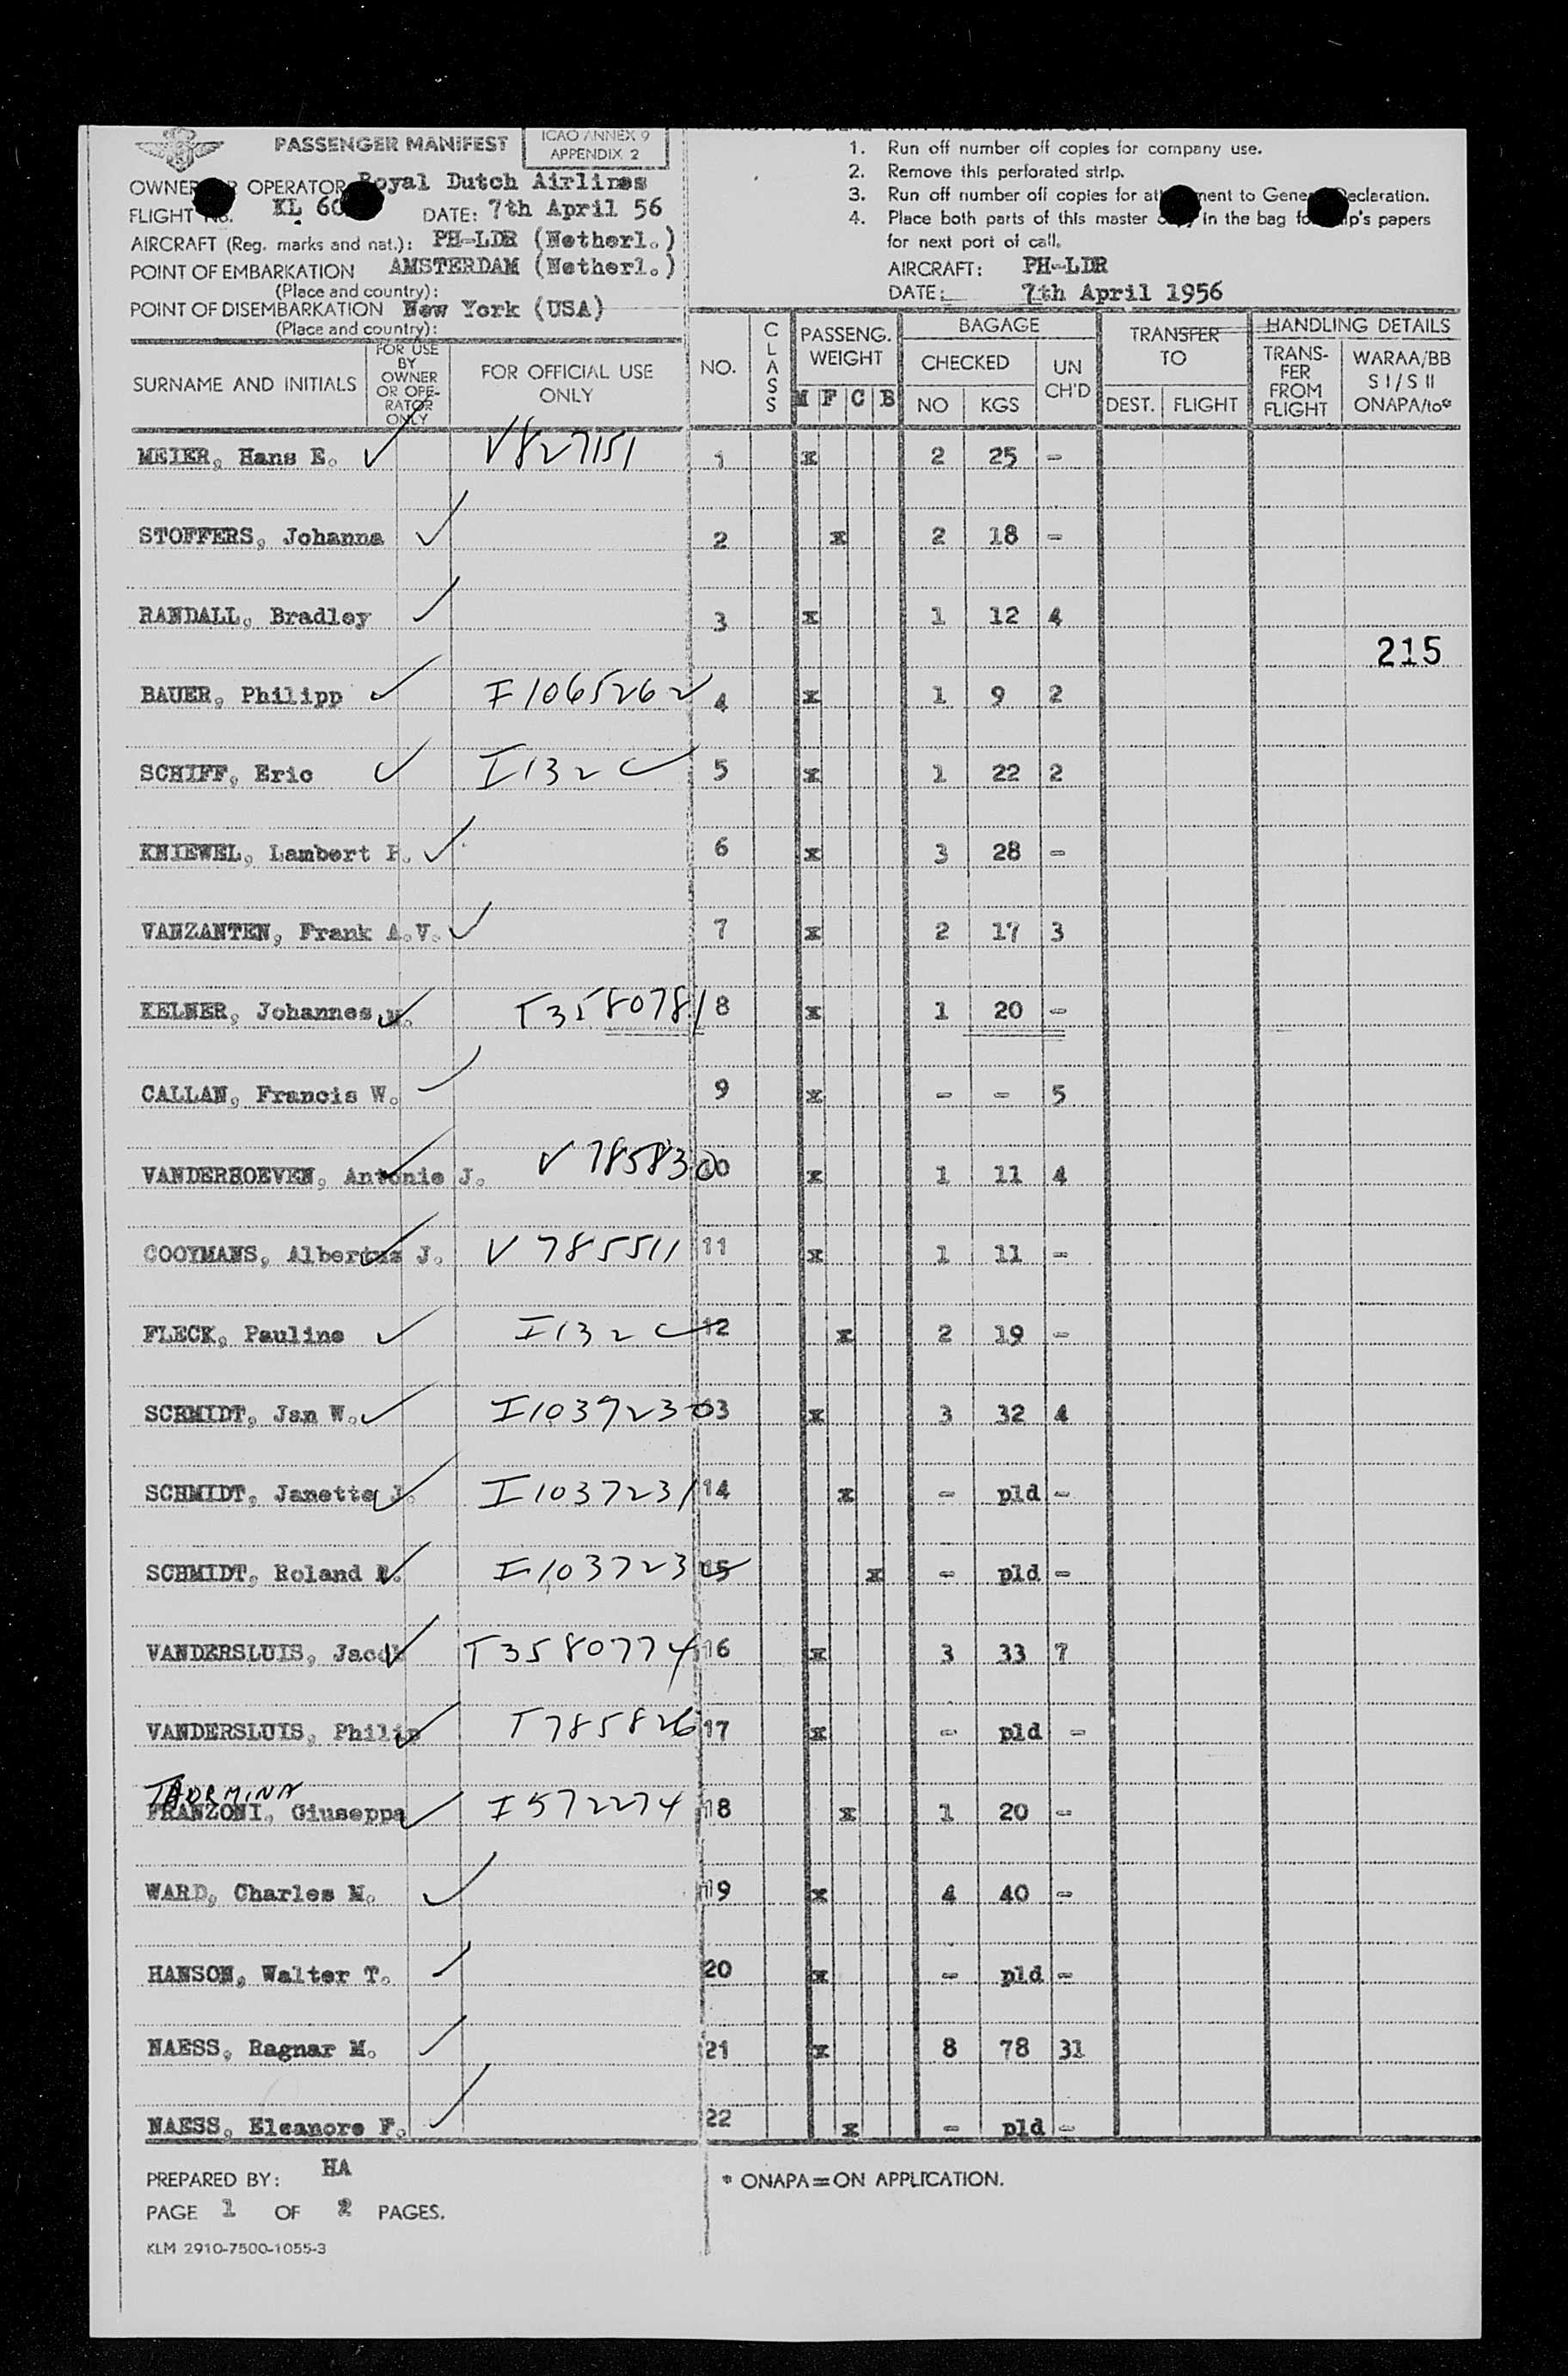 PASSENGER MANIFEST
ICAO ANNEX 9
APPENDIX 2
OWNER OR OPERATOR Royal Dutch Airlines
FLIGHT No. KL 60 DATE: 7th April 56
AIRCRAFT (Reg. marks and nat.): PH-LDR (Netherl.)
POINT OF EMBARKATION AMSTERDAM (Netherl.)
(Place and country):
POINT OF DISEMBARKATION New York (USA)
(Place and country):
1. Run off number off copies for company use.
2. Remove this perforated strip.
3. Run off number off copies for attachment to General Declaration.
4. Place both parts of this master copy in the bag for ship's papers
for next port of call.
AIRCRAFT: PH-LDR
DATE: 7th April 1956
SURNAME AND INITIALS FOR USE BY OWNER OR OPE-RATOR ONLY FOR OFFICIAL USE ONLY NO. CLASS PASSENG. WEIGHT M F C B BAGAGE CHECKED NO KGS UN CH'D TRANSFER TO DEST. FLIGHT HANDLING DETAILS TRANS-FER FROM FLIGHT WARAA/BB S I / S II ONAPA/to*
MEIER, Hans E. ✓ V827151 1 x 2 25 -
STOFFERS, Johanna ✓ 2 x 2 18 -
RANDALL, Bradley ✓ 3 x 1 12 4
215
BAUER, Philipp ✓ I1065262 4 x 1 9 2
SCHIFF, Eric ✓ I132 C 5 x 1 22 2
KNIEWEL, Lambert P. ✓ 6 x 3 28 -
VANZANTEN, Frank A.V. ✓ 7 x 2 17 3
KELNER, Johannes M. ✓ T3580781 8 x 1 20 -
CALLAN, Francis W. ✓ 9 x - - 5
VANDERHOEVEN, Antonie J. ✓ V785830 10 x 1 11 4
COOYMANS, Albertus J. ✓ V785511 11 x 1 11 -
FLECK, Pauline ✓ I132 C 12 x 2 19 -
SCHMIDT, Jan W. ✓ I1037230 13 x 3 32 4
SCHMIDT, Janette J. ✓ I1037231 14 x - pld -
SCHMIDT, Roland R. ✓ I1037232 15 x - pld -
VANDERSLUIS, Jacob ✓ T3580774 16 x 3 33 7
VANDERSLUIS, Philip ✓ T785826 17 x - pld -
TAORMINA
FRANZONI, Giuseppa ✓ I572274 18 x 1 20 -
WARD, Charles M. ✓ 19 x 4 40 -
HANSON, Walter T. ✓ 20 x - pld -
NAESS, Ragnar M. ✓ 21 x 8 78 31
NAESS, Eleanore F. ✓ 22 x - pld -
PREPARED BY: HA
* ONAPA = ON APPLICATION.
PAGE 1 OF 2 PAGES.
KLM 2910-7500-1055-3